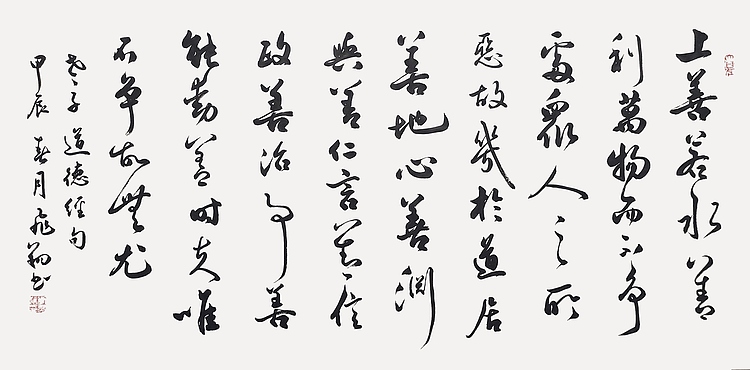 上善若水善
利萬物而不争
處眾人之所
惡故幾於道居
善地心善淵
與善仁言善信
政善治事善
能動善時夫唯
不争故無尤
老子道德經句
甲辰春月飛書